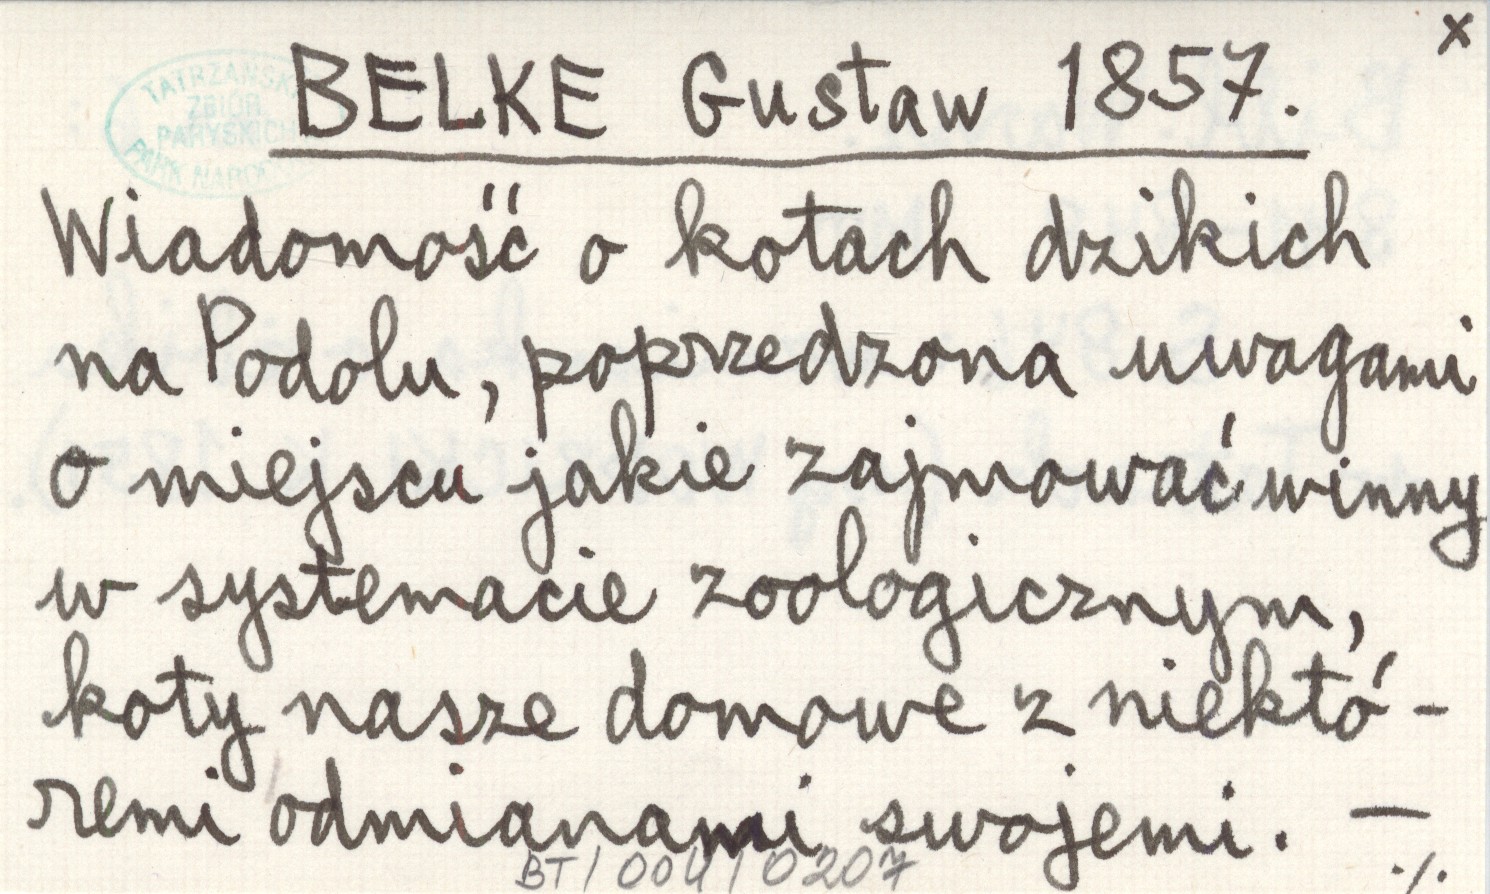 x
TATRZAŃSKI
ZBIÓR
PARYSKICH
PARK NARODOWY
BELKE Gustaw 1857.
Wiadomość o kotach dzikich
na Podolu, poprzedzona uwagami
o miejscu jakie zajmować winny
w systemacie zoologicznym,
koty nasze domowe z niektó-
remi odmianami swojemi. —
BT/004/0207
./.